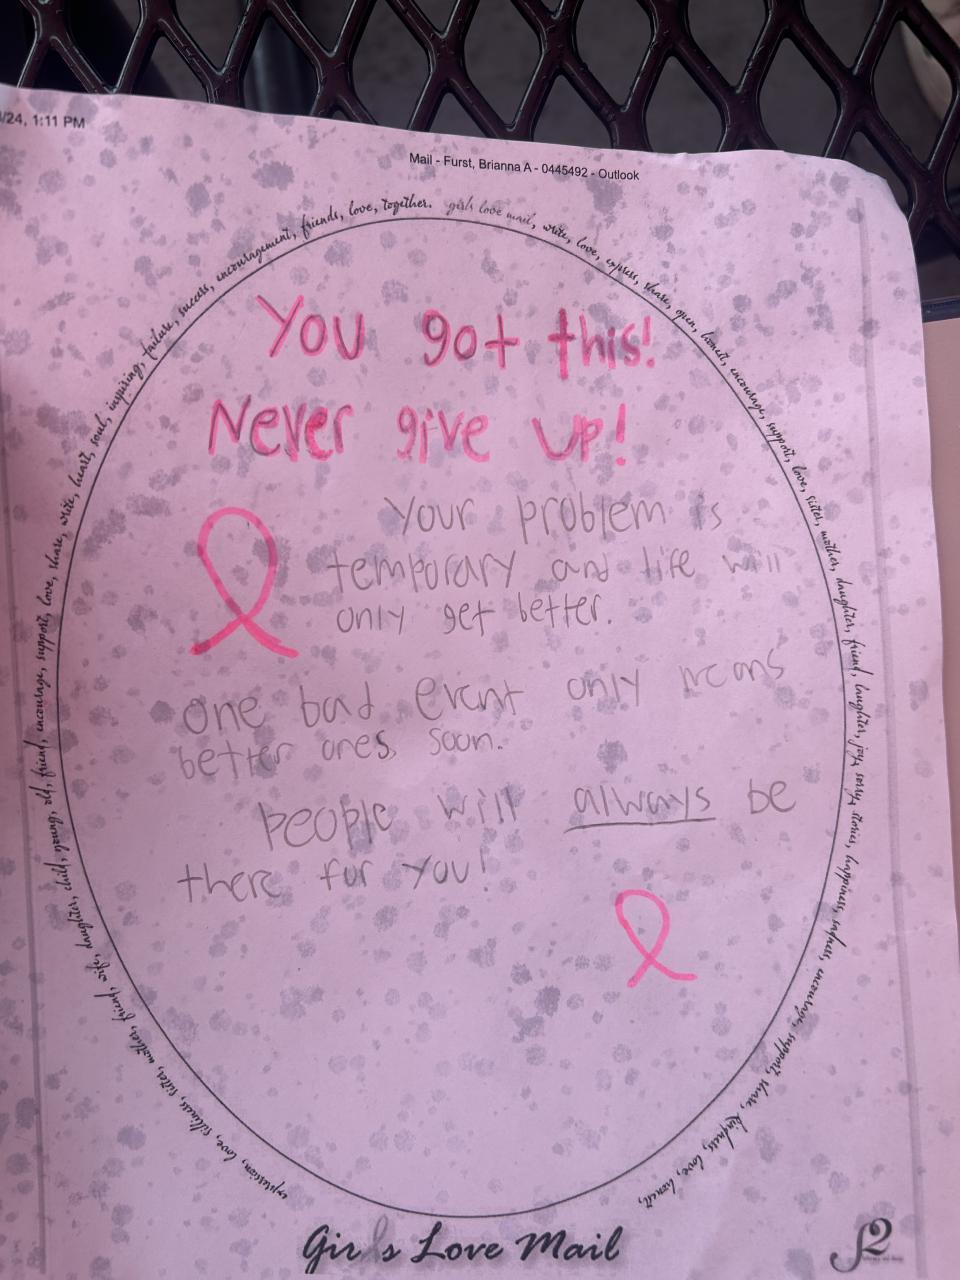 /24, 1:11 PM
Mail - Furst, Brianna A - 0445492 - Outlook
girls love mail, write, love, express, share, open, honest, encourage, support, love, sister, mother, daughter, friend, laughter, joys, sorrys, stories, happiness, sadness, encourage, support, share, kindness, love, honest,
expression, love, silliness, sister, mother, friend, wife, daughter, child, young, old, friend, encourage, support, love, share, write, heart, soul, inspiring, failure, success, encouragement, friends, love, together.
You got this!
Never give up!
Your problem is
temporary and life will
only get better.
one bad event only means
better ones, soon.
people will always be
there for you!
Girls Love Mail